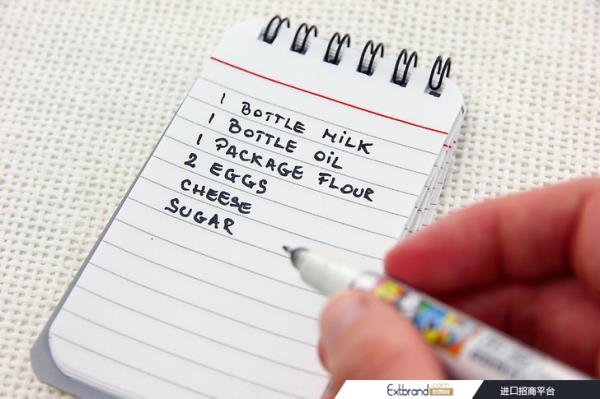 1 BOTTLE MILK
1 BOTTLE OIL
1 PACKAGE FLOUR
2 EGGS
CHEESE
SUGAR
Extbrand.com
进口招商平台